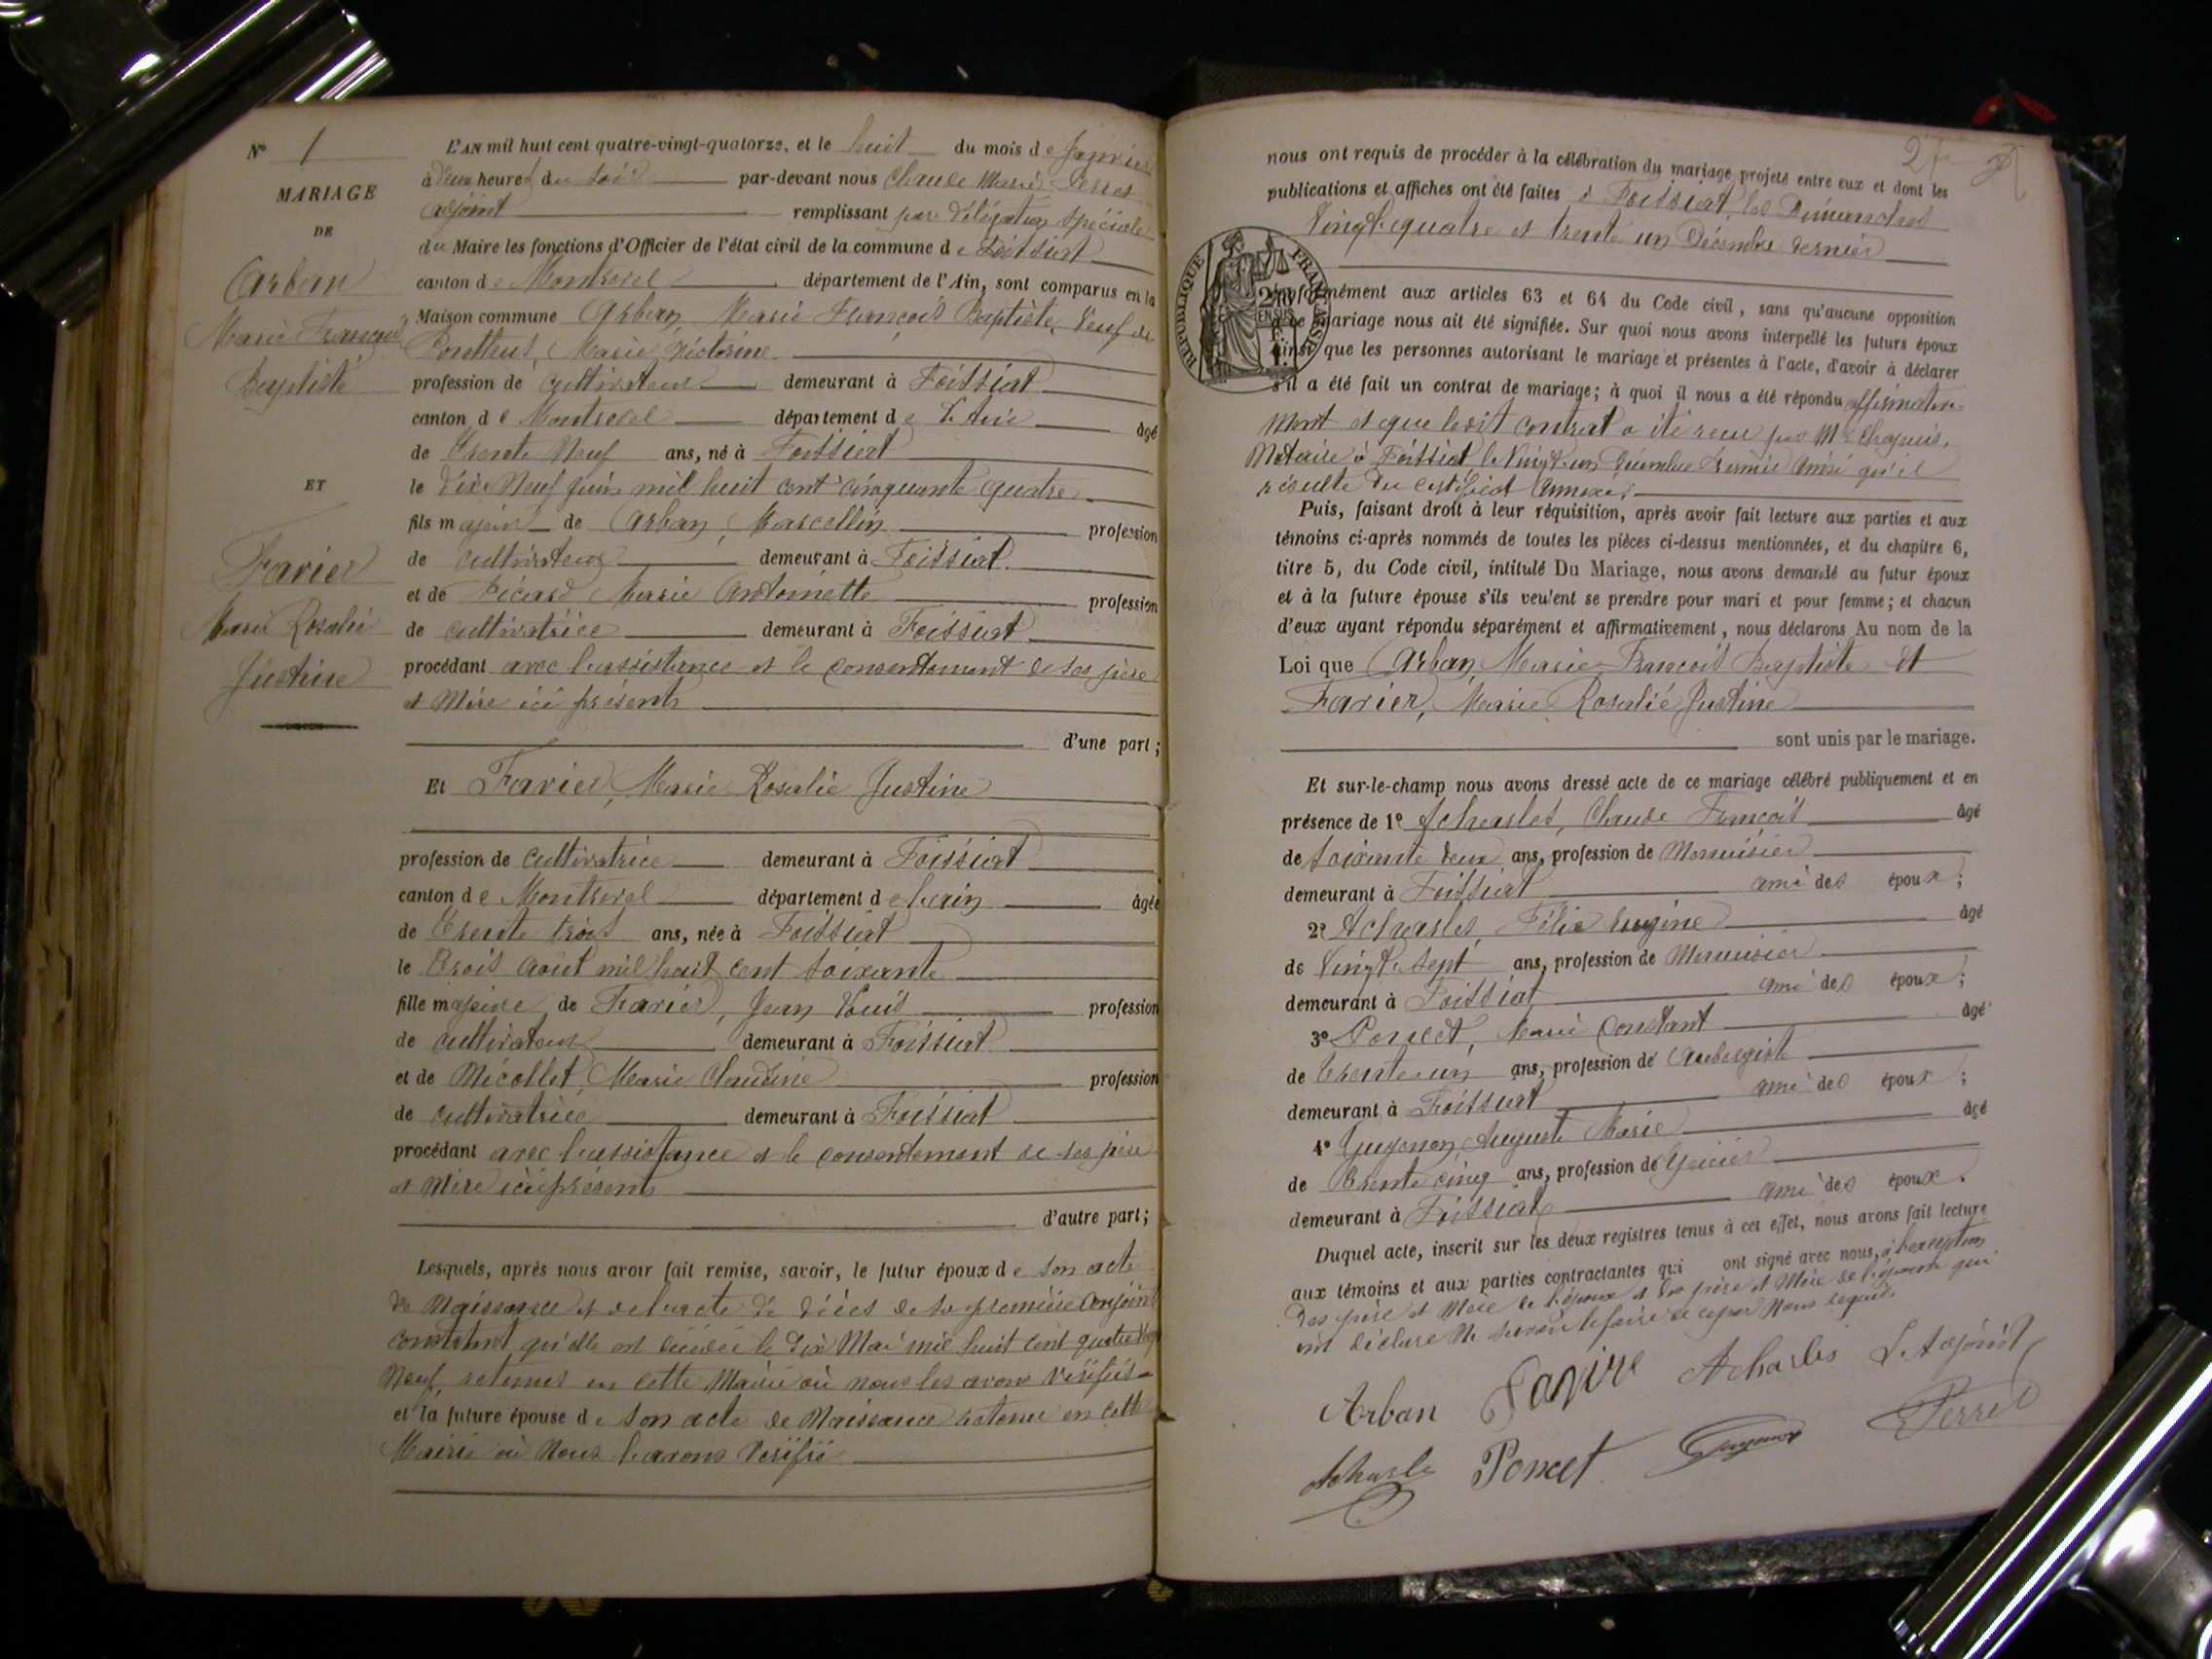 N° 1
MARIAGE
DE
Arban
Marie François
Baptiste
ET
Favier
Marie Rosalie
Justine
L'AN mil huit cent quatre-vingt-quatorze, et le huit du mois de Janvier
à deux heures du soir par-devant nous Claude Marie Perret
adjoint remplissant par délégation spéciale
du Maire les fonctions d'Officier de l'état civil de la commune de Foissiat
canton de Montrevel département de l'Ain, sont comparus en la
Maison commune Arban, Marie François Baptiste, Veuf de
Ponthus, Marie Victorine
profession de cultivateur demeurant à Foissiat
canton de Montrevel département de L'Ain âgé
de Trente Neuf ans, né à Foissiat
le dix Neuf juin mil huit cent cinquante quatre
fils majeur de Arban, Marcellin profession
de cultivateur demeurant à Foissiat
et de Picard Marie Antoinette profession
de cultivatrice demeurant à Foissiat
procédant avec l'assistance et le consentement de ses père
et Mère ici présents
d'une part;
Et Favier, Marie Rosalie Justine
profession de cultivatrice demeurant à Foissiat
canton de Montrevel département de l'ain âgée
de Trente trois ans, née à Foissiat
le Trois Août mil huit cent soixante
fille majeure de Favier, Jean Louis profession
de cultivateur demeurant à Foissiat
et de Micollet Marie Claudine profession
de cultivatrice demeurant à Foissiat
procédant avec l'assistance et le consentement de ses père
et Mère ici présents
d'autre part;
Lesquels, après nous avoir fait remise, savoir, le futur époux de son acte
de Naissance et de l'acte de décès de sa première conjointe
constatant qu'elle est décédée le dix Mai mil huit cent quatre vingt
Neuf, retenus en cette Mairie où nous les avons vérifiés
et la future épouse de son acte de Naissance retenu en cette
Mairie où Nous l'avons vérifié
27
nous ont requis de procéder à la célébration du mariage projeté entre eux et dont les
publications et affiches ont été faites à Foissiat, les Dimanches
Vingt quatre et trente un Décembre dernier
REPUBLIQUE FRANÇAISE
conformément aux articles 63 et 64 du Code civil, sans qu'aucune opposition
à ce mariage nous ait été signifiée. Sur quoi nous avons interpellé les futurs époux
ainsi que les personnes autorisant le mariage et présentes à l'acte, d'avoir à déclarer
s'il a été fait un contrat de mariage; à quoi il nous a été répondu affirmative
ment et que ledit contrat a été reçu par Me Chapuis,
Notaire à Foissiat le Vingt un Décembre dernier ainsi qu'il
résulte du certificat annexé
Puis, faisant droit à leur réquisition, après avoir fait lecture aux parties et aux
témoins ci-après nommés de toutes les pièces ci-dessus mentionnées, et du chapitre 6,
titre 5, du Code civil, intitulé Du Mariage, nous avons demandé au futur époux
et à la future épouse s'ils veulent se prendre pour mari et pour femme; et chacun
d'eux ayant répondu séparément et affirmativement, nous déclarons Au nom de la
Loi que Arban, Marie François Baptiste et
Favier, Marie Rosalie Justine
sont unis par le mariage.
Et sur-le-champ nous avons dressé acte de ce mariage célébré publiquement et en
présence de 1° Acharles, Claude François âgé
de soixante deux ans, profession de Menuisier
demeurant à Foissiat ami des époux;
2° Acharles, Félix Eugène âgé
de Vingt sept ans, profession de Menuisier
demeurant à Foissiat ami des époux;
3° Poncet, Marie Constant âgé
de trente un ans, profession de Aubergiste
demeurant à Foissiat ami des époux;
4° Guyonon, Auguste Marie âgé
de Trente cinq ans, profession de épicier
demeurant à Foissiat ami des époux.
Duquel acte, inscrit sur les deux registres tenus à cet effet, nous avons fait lecture
aux témoins et aux parties contractantes qui ont signé avec nous, à l'exception
des père et Mère de l'époux et des père et Mère de l'épouse qui
ont déclaré Ne savoir le faire de ce par Nous requis.
Arban Acharles L'Adjoint
Acharle Poncet Perret